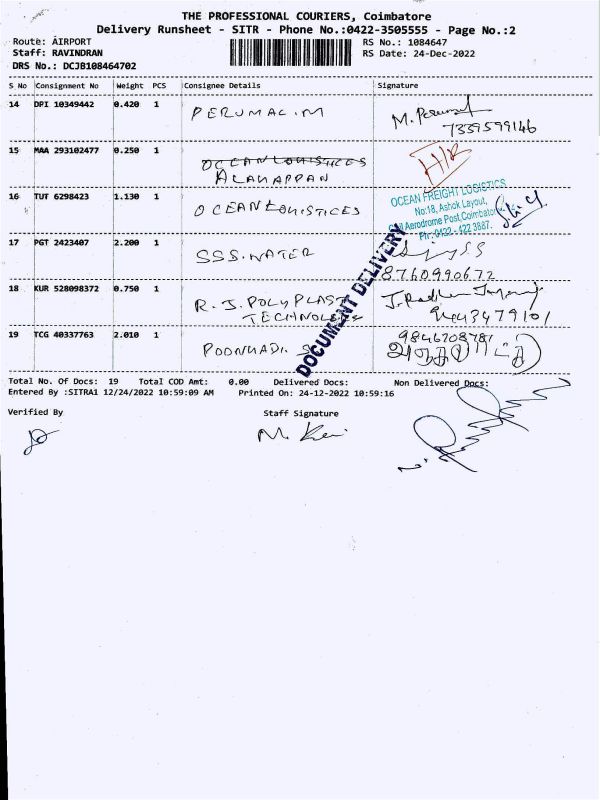 THE PROFESSIONAL COURIERS, Coimbatore
Delivery Runsheet - SITR - Phone No.:0422-3505555 - Page No.:2
Route: AIRPORT
RS No.: 1084647
Staff: RAVINDRAN
RS Date: 24-Dec-2022
DRS No.: DCJB108464702
S No Consignment No Weight PCS Consignee Details Signature
14 DPI 10349442 0.420 1 PERUMAL.M
7339599146
15 MAA 293102477 0.250 1 OCEAN LOGISTICES
ALAGAPPAN
H/R
16 TUT 6298423 1.130 1 OCEAN LOGISTICES
OCEAN FREIGHT LOGISTICS
No:18, Ashok Layout,
Civil Aerodrome Post, Coimbatore
Ph: 0422 - 422 3887.
17 PGT 2423407 2.200 1 SSS.WATER
8760990672
18 KUR 528098372 0.750 1 R.J. POLYPLAST
TECHNOLOGIES
9443479101
19 TCG 40337763 2.010 1 POONGADI. S
9846708781
DOCUMENT DELIVERY
Total No. Of Docs: 19 Total COD Amt: 0.00 Delivered Docs: Non Delivered Docs:
Entered By :SITRA1 12/24/2022 10:59:09 AM Printed On: 24-12-2022 10:59:16
Verified By Staff Signature